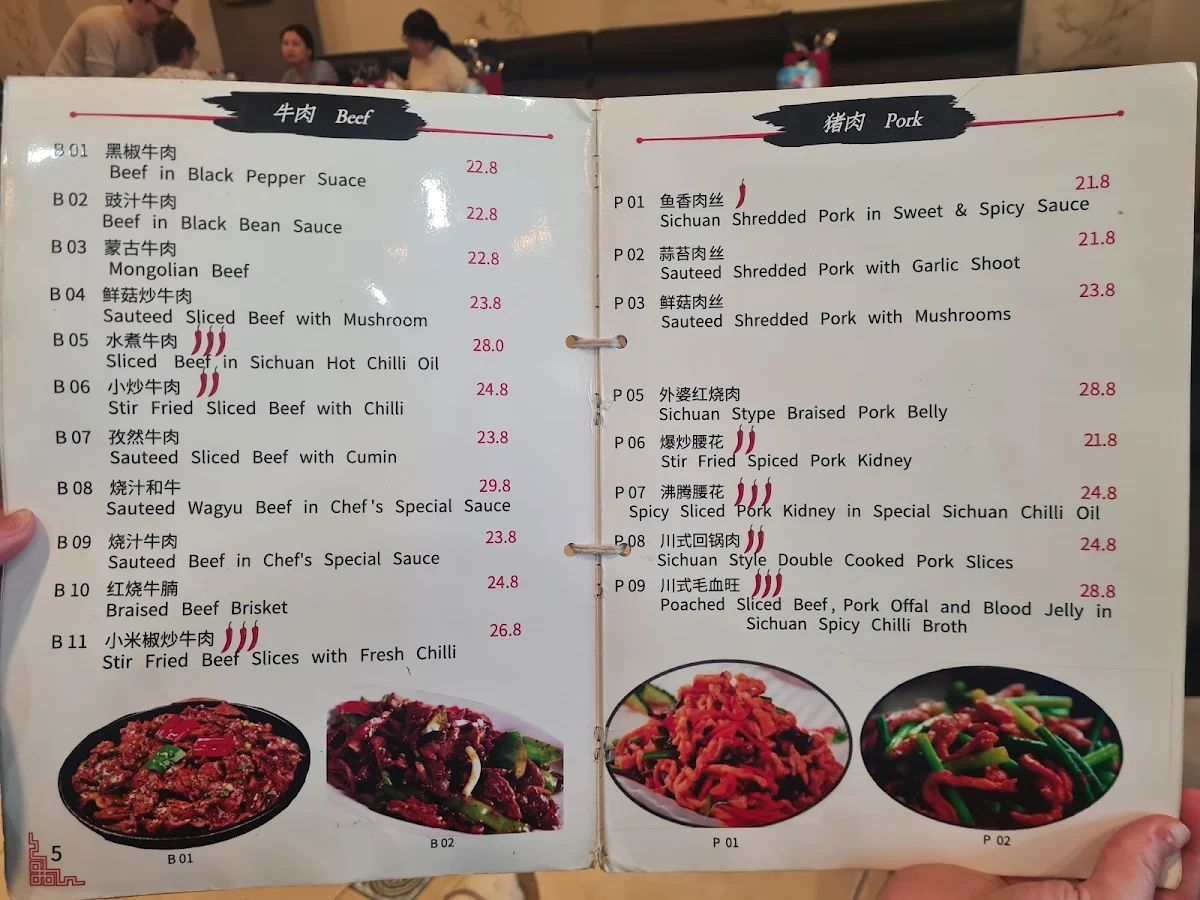 牛肉 Beef
B 01 黑椒牛肉 22.8
Beef in Black Pepper Suace
B 02 豉汁牛肉 22.8
Beef in Black Bean Sauce
B 03 蒙古牛肉 22.8
Mongolian Beef
B 04 鲜菇炒牛肉 23.8
Sauteed Sliced Beef with Mushroom
B 05 水煮牛肉 28.0
Sliced Beef in Sichuan Hot Chilli Oil
B 06 小炒牛肉 24.8
Stir Fried Sliced Beef with Chilli
B 07 孜然牛肉 23.8
Sauteed Sliced Beef with Cumin
B 08 烧汁和牛 29.8
Sauteed Wagyu Beef in Chef's Special Sauce
B 09 烧汁牛肉 23.8
Sauteed Beef in Chef's Special Sauce
B 10 红烧牛腩 24.8
Braised Beef Brisket
B 11 小米椒炒牛肉 26.8
Stir Fried Beef Slices with Fresh Chilli
B 01
B 02
5
猪肉 Pork
P 01 鱼香肉丝 21.8
Sichuan Shredded Pork in Sweet & Spicy Sauce
P 02 蒜苔肉丝 21.8
Sauteed Shredded Pork with Garlic Shoot
P 03 鲜菇肉丝 23.8
Sauteed Shredded Pork with Mushrooms
P 05 外婆红烧肉 28.8
Sichuan Stype Braised Pork Belly
P 06 爆炒腰花 21.8
Stir Fried Spiced Pork Kidney
P 07 沸腾腰花 24.8
Spicy Sliced Pork Kidney in Special Sichuan Chilli Oil
P 08 川式回锅肉 24.8
Sichuan Style Double Cooked Pork Slices
P 09 川式毛血旺 28.8
Poached Sliced Beef, Pork Offal and Blood Jelly in
Sichuan Spicy Chilli Broth
P 01
P 02